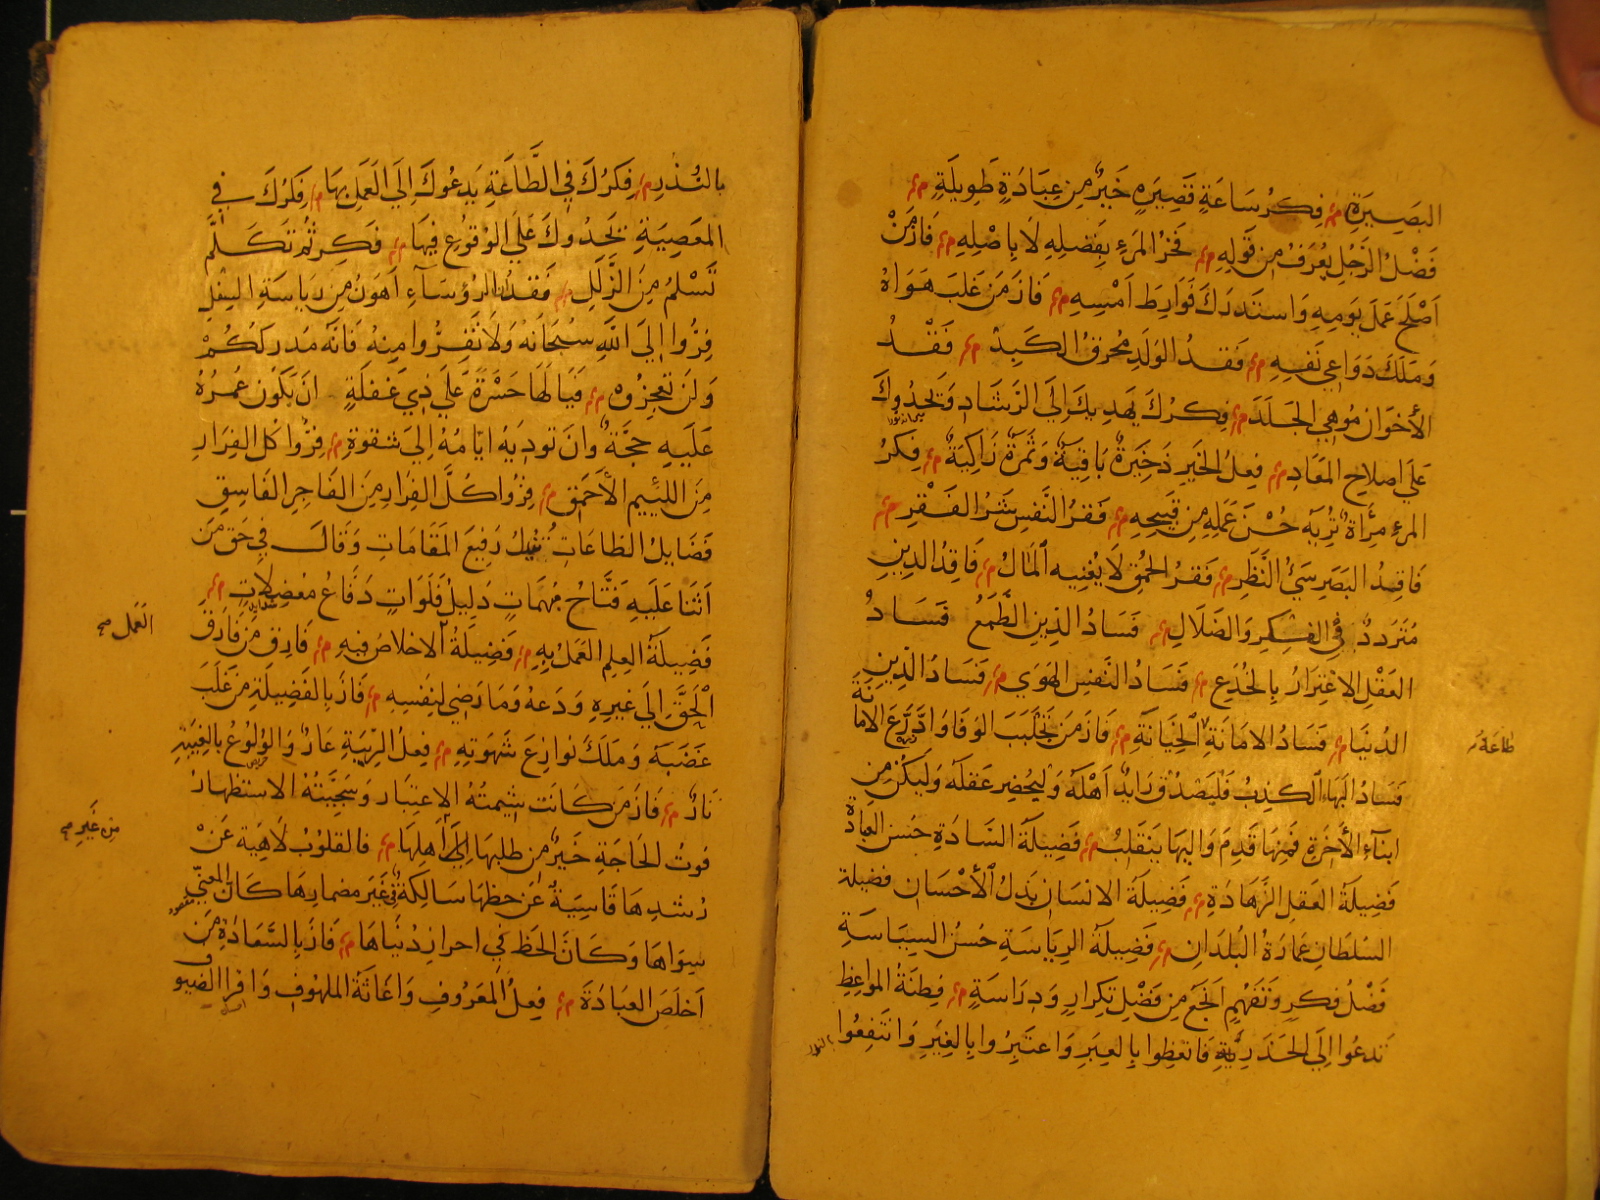 البَصِيرَةِ فِكرُ سَاعَةٍ قَصِيرَةٍ خَيرٌ مِن عِبَادَةٍ طَوِيلَةٍ
فَضْلُ الرَّجُلِ يُعرَفُ مِن قَولِهِ فَخرُ المَرءِ بِفَضلِهِ لَا بِاَصْلِهِ فَازَ مَنْ
اَصْلَحَ عَمَلَ يَومِهِ وَاستَدرَكَ فَوَارِطَ اَمْسِهِ فَازَ مَن غَلَبَ هَوَاهُ
وَمَلَكَ دَوَاعِي نَفسِهِ فَقدُ الوَلَدِ مُحرِقُ الكَبِدْ فَقْدُ
الأخوَان مُوهِي الجَلَدَ فِكرُكَ يَهدِيكَ اِلَي الرَّشَادِ وَيَحدُوكَ
عَلَي اصلاح المَعَادِ فِعلُ الخَيرِ ذَخِيرَةٌ بَاقِيَةٌ وَثَمرَةٌ زَاكِيَةٌ فِكرُ
المَرءِ مِرَّاةٌ تُرِيهِ حُسْنَ عَمَلِهِ مِن قَبِيحِهِ فَقرُ النَّفسِ شَرُّ الفَقْرِ
فَاقِدُ البَصَرِ سَيئُ النَّظَرِ فَقرُ الحُمقِ لَا يُغنِيهِ المَالُ فَاقِدُ الدِينِ
مُتَرَددٌ فِي الكُفرِ وَالضَلَالِ فَسَادُ الدِينِ الطَّمَعُ فَسَادُ
العَقْلِ الاغتِرَارُ بِالخُدَعِ فَسَادُ النَّفسِ الهَوَي فَسَادُ الدِينِ
الدُنيَا فَسَادُ الامَانَةِ الخِيَانَةِ فَازَ مَن تَجَلبَبَ الوَفَا وَادَّرَعَ الامَانَةَ
طَاعَة
فَسَادُ البَهَاءِ الكذبُ فَليَصْدُق رَايِدٌ اَهْلَهُ وَليُحضِر عَقلَهُ وَليَكُن مِن
ابنَآءِ الأخرَةِ فَمِنهَا قَدِمَ وَاِلَيهَا يَنقَلِبُ فَضِيلَةُ السَّادَةِ حُسنُ العِبَادَةِ
فَضِيلَةُ العَقلِ الزَهَادَةِ فَضِيلَةُ الانسَانِ بَذلُ الأحْسَانِ فضيلة
السُلطَانِ عِمَارَةُ البُلدَانِ فَضِيلَةُ الرِيَاسَةِ حُسنُ السِيَاسَةِ
فَضْلُ فِكرٍ وَتَفَهُمٍ اَنجَعُ مِن فَضْلِ تِكرارٍ وَدِرَاسَةٍ فِطنَةُ المواعِظِ
تَدعُوا اِلَي الحَذَرِ فَاتعِظوا بِالعِبَرِ وَاعتَبِرُوا بِالغِيَرِ وَانتَفِعُوا
بالنذر
بالنُّذرِ فِكرُكَ فِي الطَّاعَةِ يَدعُوكَ اِلَي العَمَلِ بِهَا فِكرُكَ فِي
المَعصِيَةِ يَحدُوكَ عَلَي الوُقُوعِ فِيهَا فَكِّر ثُمَّ تَكَلَّم
تَسْلَمُ مِنَ الزَّلَلِ فَقدَانُ الرُؤسَآءِ اَهوَنُ مِن رِيَاسَةِ السِفَلِ
فِرُّوا اِلَي اللَّهِ سُبحَانَهُ وَلَا تَفِرُّوا مِنهُ فَانَّهُ مَدرِككُمْ
وَلَن تعجِزُوهْ فَيَا لَهَا حَسْرَةً عَلَي ذِي غَفلَةٍ اَن يَكُون عُمرُهُ
عَلَيهِ حجَّةً وَان تودِيَهُ ايَّامُهُ اِليَ شقوَةٍ فِرُّوا كُلَ الفِرَارِ
مِنَ اللئيم الأحمَقِ فِرُّوا كُلَّ الفِرَارِ مِنَ الفَاجِرِ الفَاسِقِ
فَضَايِلُ الطَاعَاتِ تُنيلُ رَفِيعَ المَقَامَاتِ وَقَالَ فِي حَق مَن
اَثنَا عَلَيهِ فَتَّاح مُهِمَاتٍ دَلِيلُ فَلَوَاتٍ دَفَاعُ مُعضِلَاتٍ
العَمَل صح
فَضِيلَةُ العِلمِ العَمَلُ بِهِ فَضِيلَةُ الاخلَاصُ فِيهِ فَارِق مَن فَارَقَ
الْحَقَّ اِلَي غَيرِهِ وَدَعهُ وَمَا رَضِي لِنَفسِهِ فَازَ بِالفَضِيلَةِ مَن غَلَبَ
غَضَبَهُ وَمَلَكَ نوازِعَ شَهوَتِهِ فِعلُ الرِيبَةِ عَارٌ وَالوُلُوعُ بِالغِيبَةِ
نَارٌ فَازَ مَن كَانَت شِيمَتُهُ الاعتِبَار وَسَجِيَّتُهُ الاستظهار
مِن غَيرِ صح
فوتُ الحَاجَةِ خَيرٌ مِن طلبها اِلَيَ اَهلِهَا فالقلوبُ لَاهيَة عَنْ
رُشدِهَا قَاسِيَةٌ عَن حظهَا سَالِكَةٌ فِي غَيرِ مضمارِهَا كَانَ المَعنِيَّ
سِوَاهَا وَكَانَ الحَظ فِي احرازِ دُنيَاهَا فَازَ بِالسَّعَادَةِ مَن
اَخلَصَ العِبَادَةَ فِعلُ المَعرُوفِ وَاغَاثَةُ الملهُوفِ وَاقراا الضيو